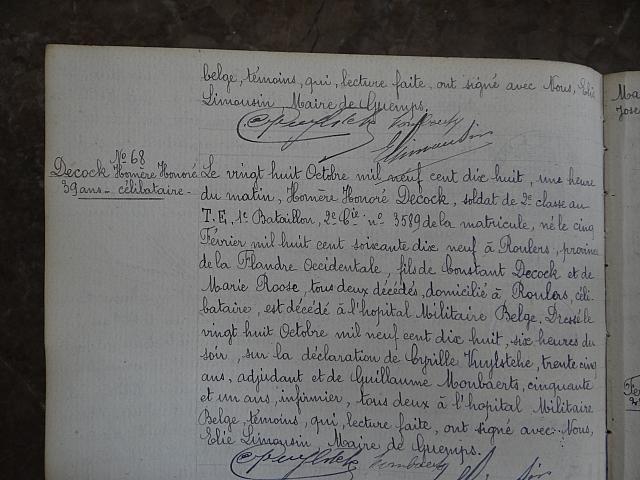 belge, témoins, qui, lecture faite, ont signé avec Nous, Elie
Limousin Maire de Guemps.
No 68
Decock Homère Honoré
39 ans - célibataire -
Le vingt huit Octobre mil neuf cent dix huit, une heure
du matin, Homère Honoré Decock, soldat de 2e classe au
T.E, 1e Bataillon, 2e Cie no 3589 de la matricule, né le cinq
Février mil huit cent soixante dix neuf à Roulers, province
de la Flandre Occidentale, fils de Constant Decock et de
Marie Roose, tous deux décédés, domicilié à Roulers, céli-
bataire, est décédé à l'hopital Militaire Belge. Dressé le
vingt huit Octobre mil neuf cent dix huit, six heures du
soir, sur la déclaration de Cyrille Vuylsteke, trente cinq
ans, adjudant et de Guillaume Monbaerts, cinquante
et un ans, infirmier, tous deux à l'hopital Militaire
Belge, témoins, qui, lecture faite, ont signé avec Nous,
Elie Limousin, Maire de Guemps.
Ma
Jose